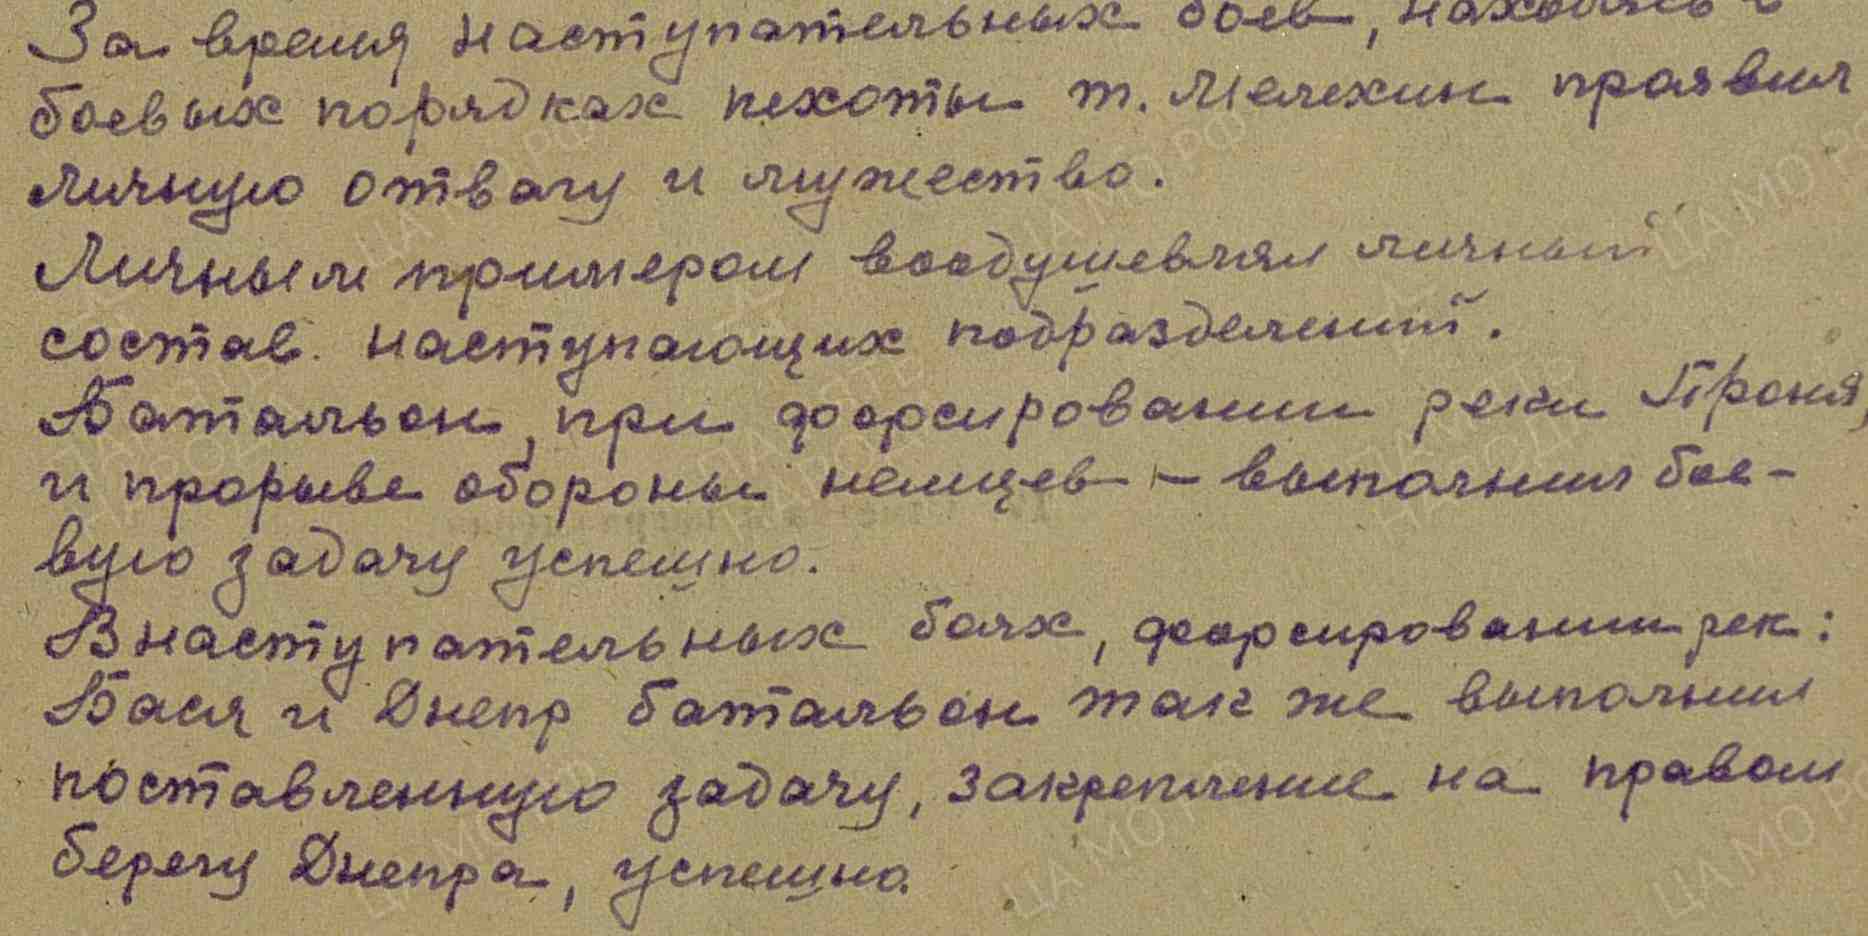 За время наступательных боев, находясь в
боевых порядках пехоты т. Мелехин проявил
личную отвагу и мужество.
Личным примером воодушевлял личный
состав наступающих подразделений.
Батальон, при форсировании реки Проня,
и прорыве обороны немцев – выполнил бое-
вую задачу успешно.
В наступательных боях, форсировании рек:
Бася и Днепр батальон так же выполнил
поставленную задачу, закрепление на правом
берегу Днепра, успешно.